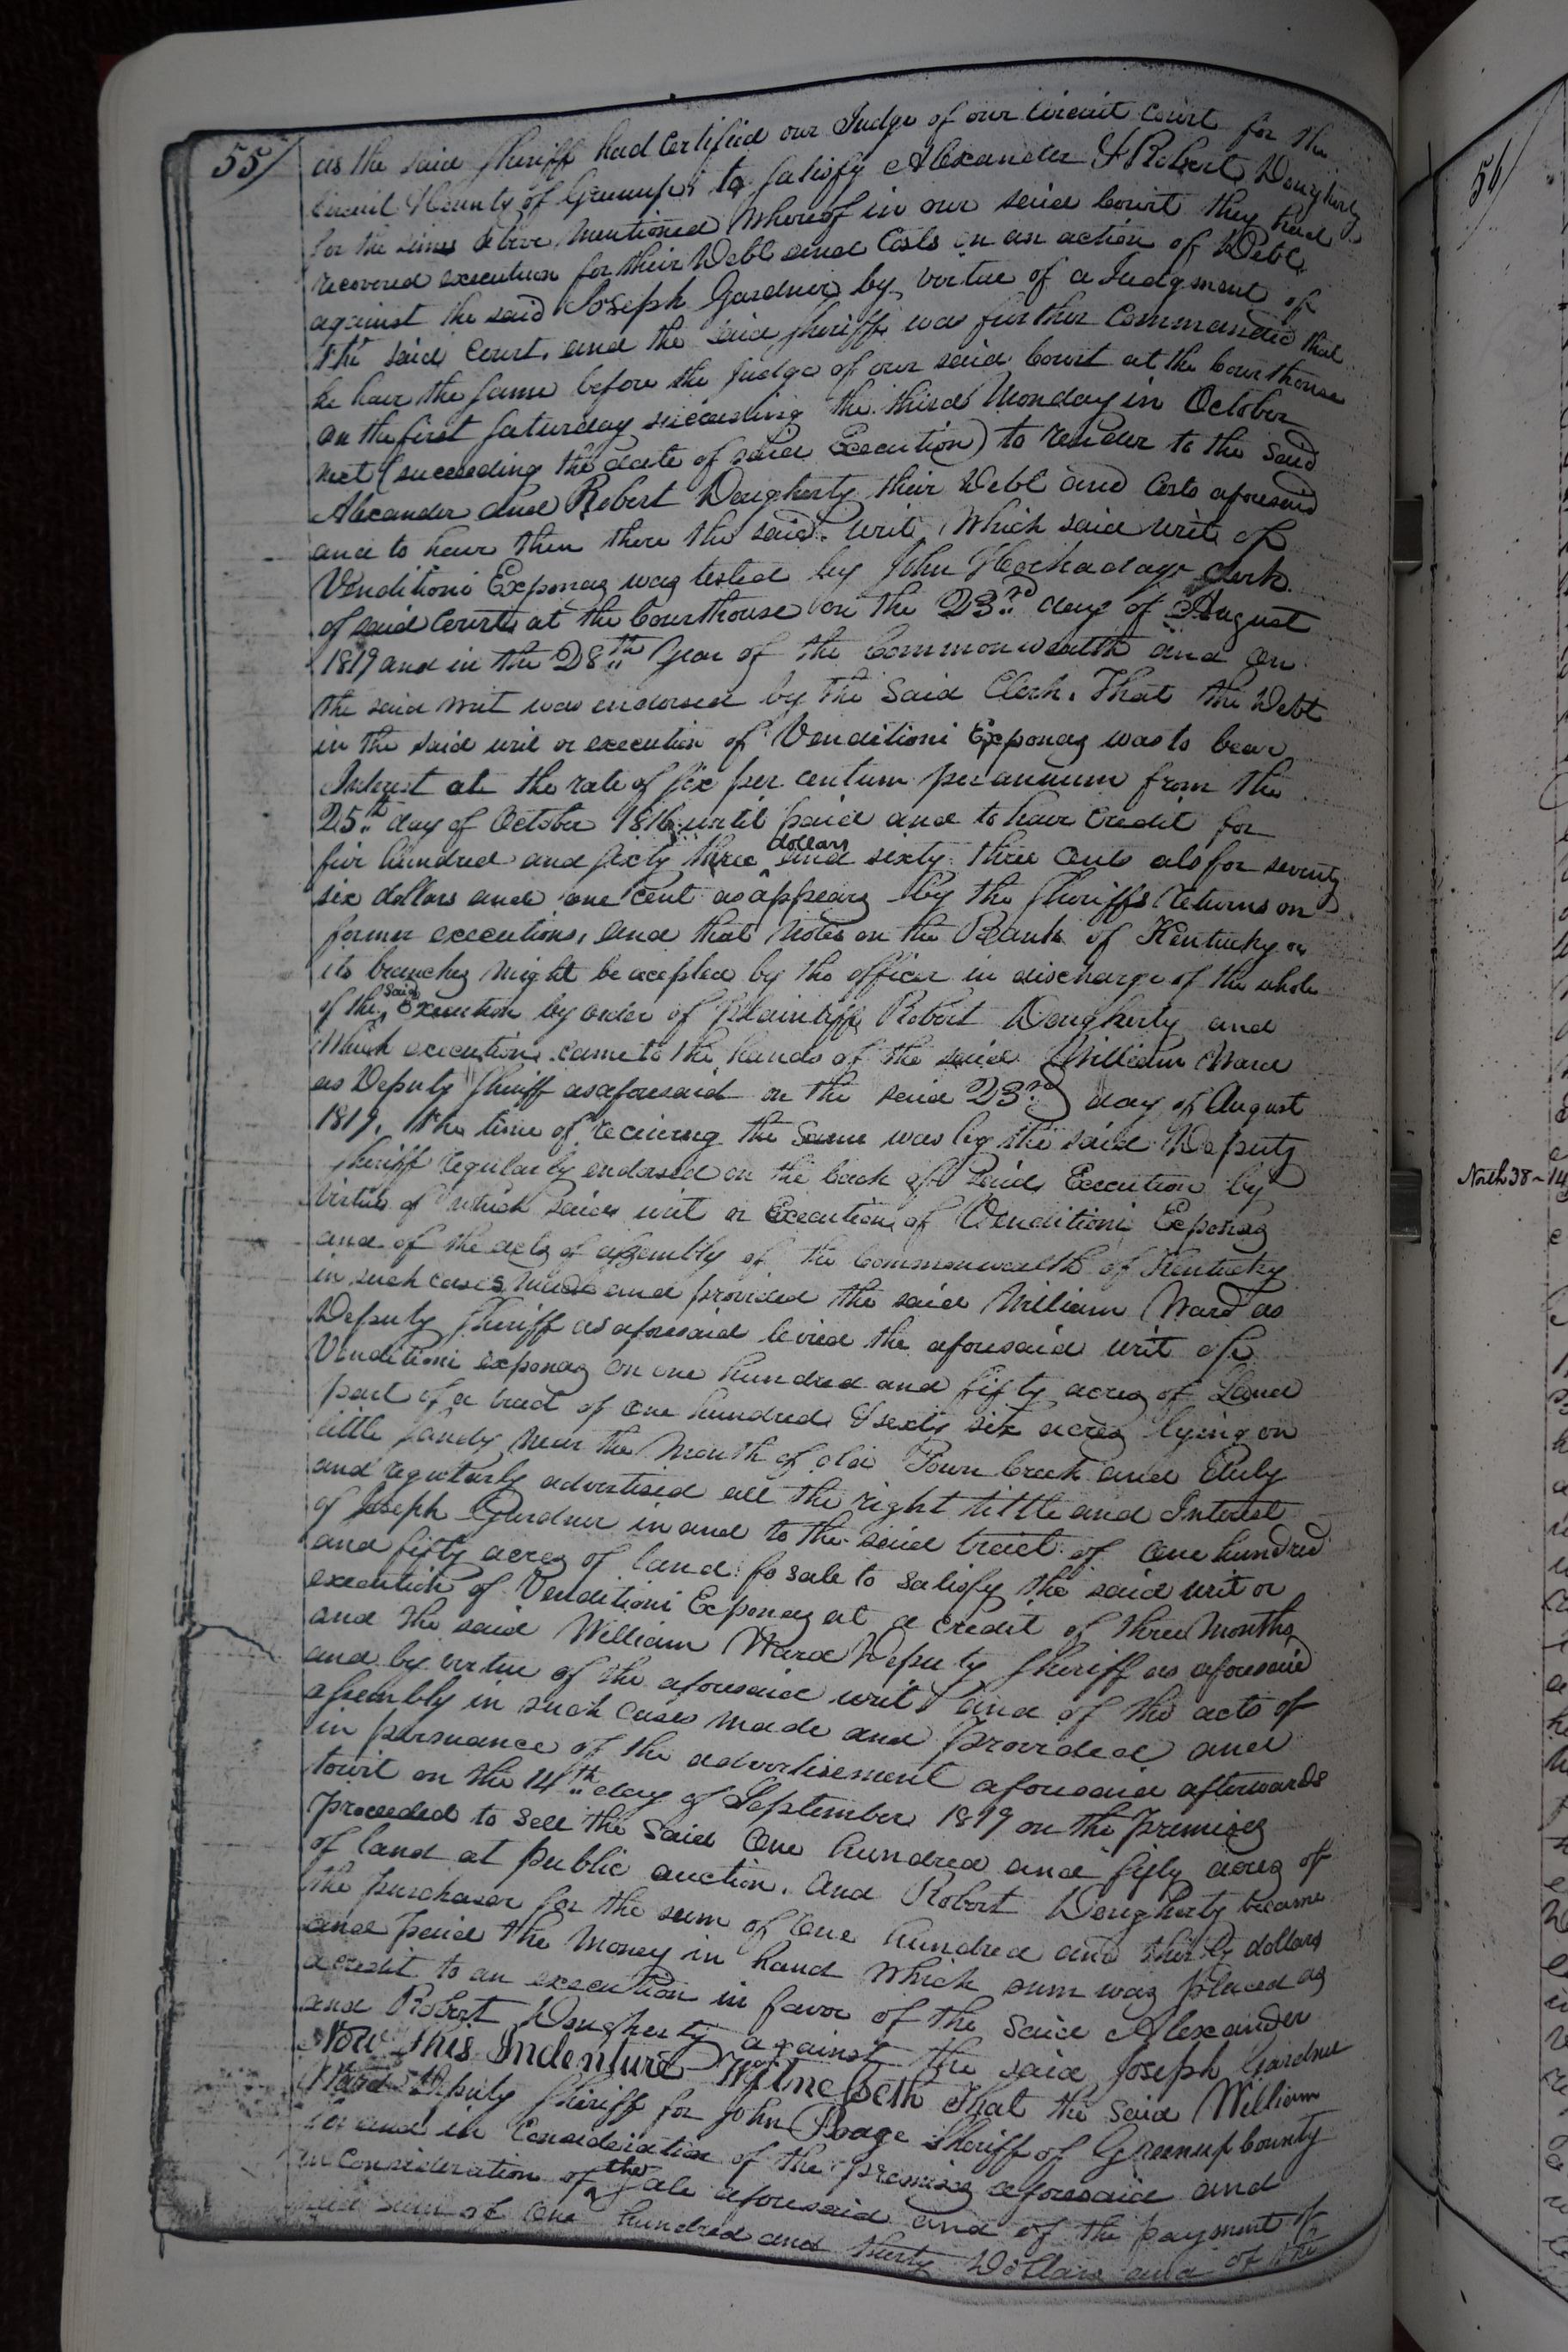 55/
as the said Sheriff had certified our Judge of our Circuit Court for the
Circuit & County of Greenup to satisfy Alexander & Robert Dougherty
for the sums above mentioned whereof in our said Court they had
recovered execution for their Debt and Costs in an action of Debt
against the said Joseph Gardner by virtue of a Judgment of
the said Court, and the said Sheriff was further Commanded that
he have the same before the Judge of our said Court at the Courthouse
on the first Saturday succeeding the third Monday in October
next (succeeding the date of said Execution) to render to the said
Alexander and Robert Dougherty their Debt and Costs aforesaid
and to have then there the said writ, Which said writ of
Venditioni Exponas was tested by John Hockaday Clerk
of said Court at the Courthouse on the 23rd day of August
1819 and in the 28th Year of the Commonwealth and on
the said writ was endorsed by the said Clerk. That the Debt
in the said writ or execution of Venditioni Exponas was to bear
Interest at the rate of six per centum per annum from the
25th day of October 1816 until paid and to have Credit for
five hundred and sixty three dollars and sixty three cents also for seventy
six dollars and one cent as appears by the Sheriffs returns on
former executions, and that Notes on the Bank of Kentucky or
its branches might be accepted by the officer in discharge of the whole
of the said Execution by order of Plaintiff Robert Dougherty and
Which execution came to the hands of the said William Ward
as Deputy Sheriff as aforesaid on the said 23rd day of August
1819, the time of receiving the same was by the said Deputy
Sheriff regularly endorsed on the back of said Execution by
virtue of which said writ or Execution of Venditioni Exponas
and of the acts of assembly of the Commonwealth of Kentucky
in such cases made and provided the said William Ward as
Deputy Sheriff as aforesaid levied the aforesaid writ of
Venditioni exponas on one hundred and fifty acres of Land
part of a tract of one hundred & sixty six acres lying on
little Sandy near the Mouth of old Town Creek and Duly
and regularly advertised all the right tittle and Interest
of Joseph Gardner in and to the said tract of one hundred
and fifty acres of land fo sale to satisfy the said writ or
execution of Venditioni Exponas at a credit of three Months
and the said William Ward Deputy Sheriff as aforesaid
and by virtue of the aforesaid writ and of the acts of
assembly in such cases made and provided and
in persuance of the advertisement aforesaid afterwards
towit on the 14th day of September 1819 on the premises
proceeded to sell the said One hundred and fifty acres of
of land at public auction. and Robert Dougherty became
the purchaser for the sum of One hundred and thirty dollars
and paid the Money in hand which sum was placed as
a credit to an execution in favor of the said Alexander
and Robert Dougherty against the said Joseph Gardner
Now This Indenture Witnesseth that the said William
Ward Deputy Sheriff for John Poage Sheriff of Greenup County
for and in Consideration of the premises aforesaid and
in Consideration of the sale aforesaid and of the payment of
said sum of One hundred and thirty Dollars and of the
56/
North 38